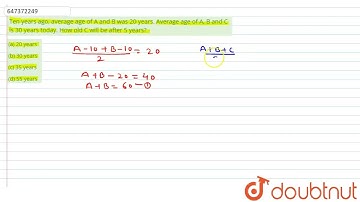 647372249
Ten years ago, average age of A and B was 20 years. Average age of A, B and C
is 30 years today. How old C will be after 5 years?
a) 20 years
b) 30 years
c) 35 years
d) 55 years
A-10+B-10/2 = 20
A+B-20 = 40
A+B = 60 - ①
A+B+C
doubtnut